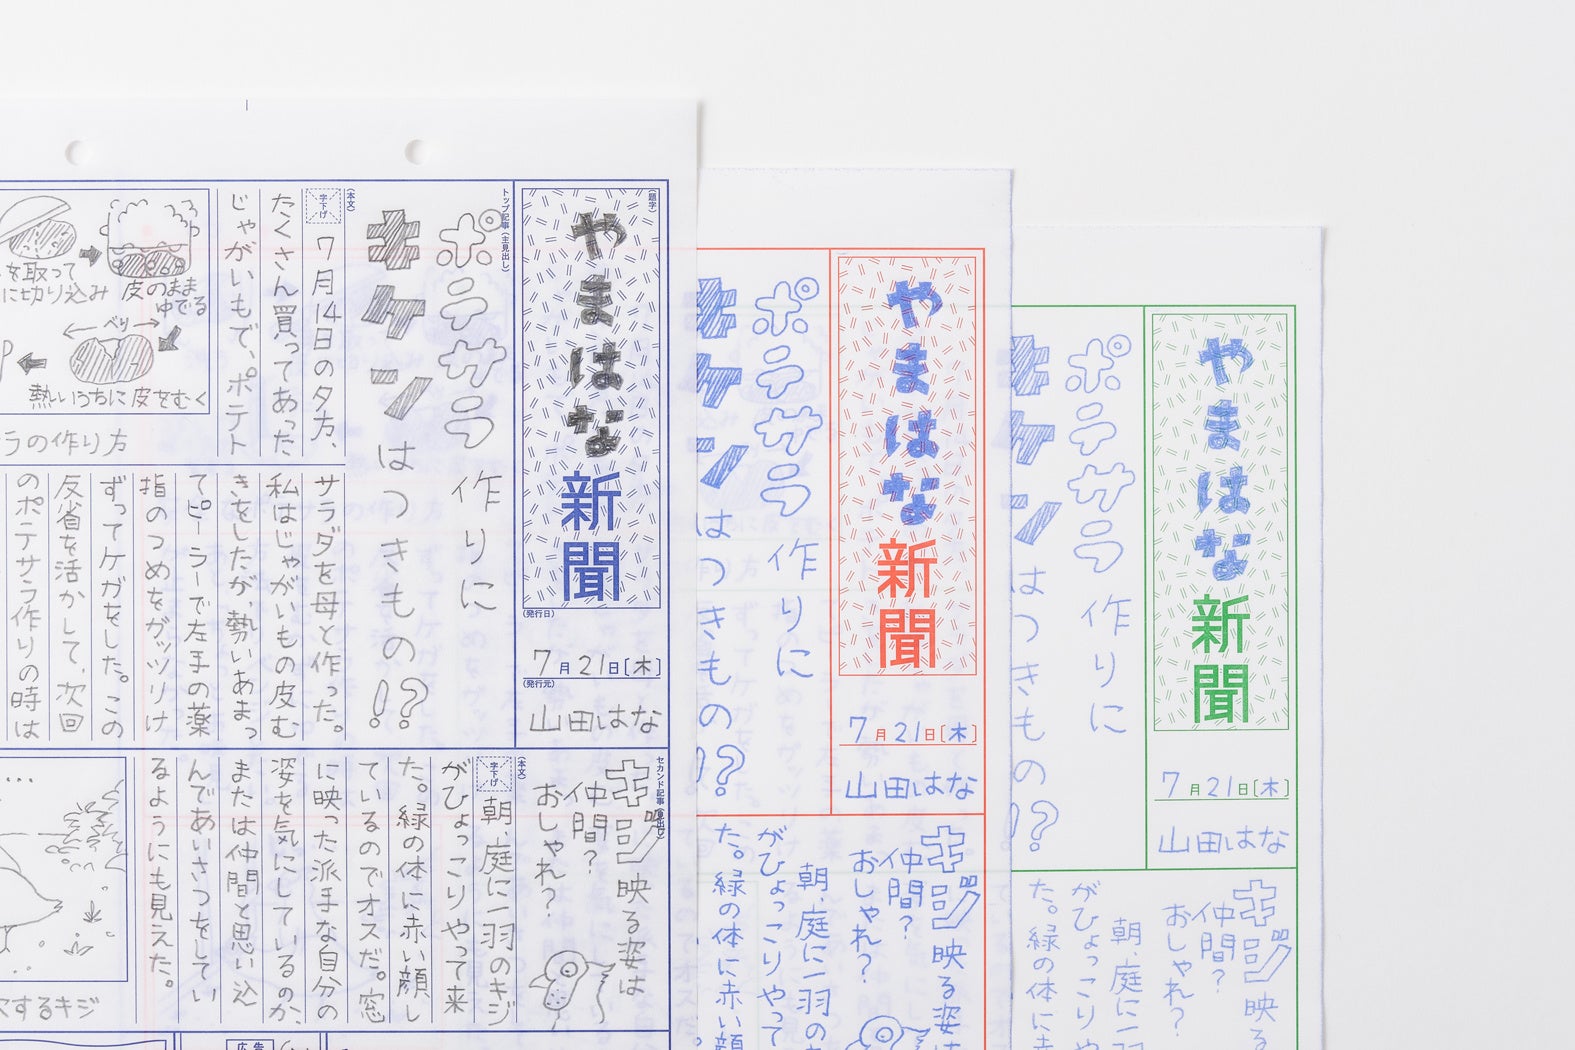 (題字)
やまはな新聞
(発行日)
7月21日〔木〕
(発行元)
山田はな
トップ記事(主見出し)
ポテサラ作りに
キケンはつきもの!?
(本文)
字下げ
7月14日の夕方、
たくさん買ってあった
じゃがいもで、ポテト
サラダを母と作った。
私はじゃがいもの皮む
きをしたが、勢いあまっ
てピーラーで左手の薬
指のつめをガッツリけ
ずってケガをした。この
反省を活かして、次回
のポテサラ作りの時は
を取って
に切り込み
皮のまま
ゆでる
べり
熱いうちに皮をむく
ラの作り方
セカンド記事(見出し)
キジ映る姿は
仲間?
おしゃれ?
(本文)
字下げ
朝、庭に一羽のキジ
がひょっこりやって来
た。緑の体に赤い顔し
ているのでオスだ。窓
に映った派手な自分の
姿を気にしているのか、
または仲間と思い込
んであいさつをしてい
るようにも見えた。
するキジ
広告
やまはな新聞
7月21日〔木〕
山田はな
ポテサラ作りに
キケンはつきもの!?
キジ映る姿は
仲間?
おしゃれ?
朝、庭に一羽の
がひょっこりやって
た。緑の体に赤い顔
やまはな新聞
7月21日〔木〕
山田はな
ポテサラ作りに
キケンはつきもの!?
キジ映る
仲間?
おしゃれ?
朝、庭に一
がひょっこりや
た。緑の体に赤